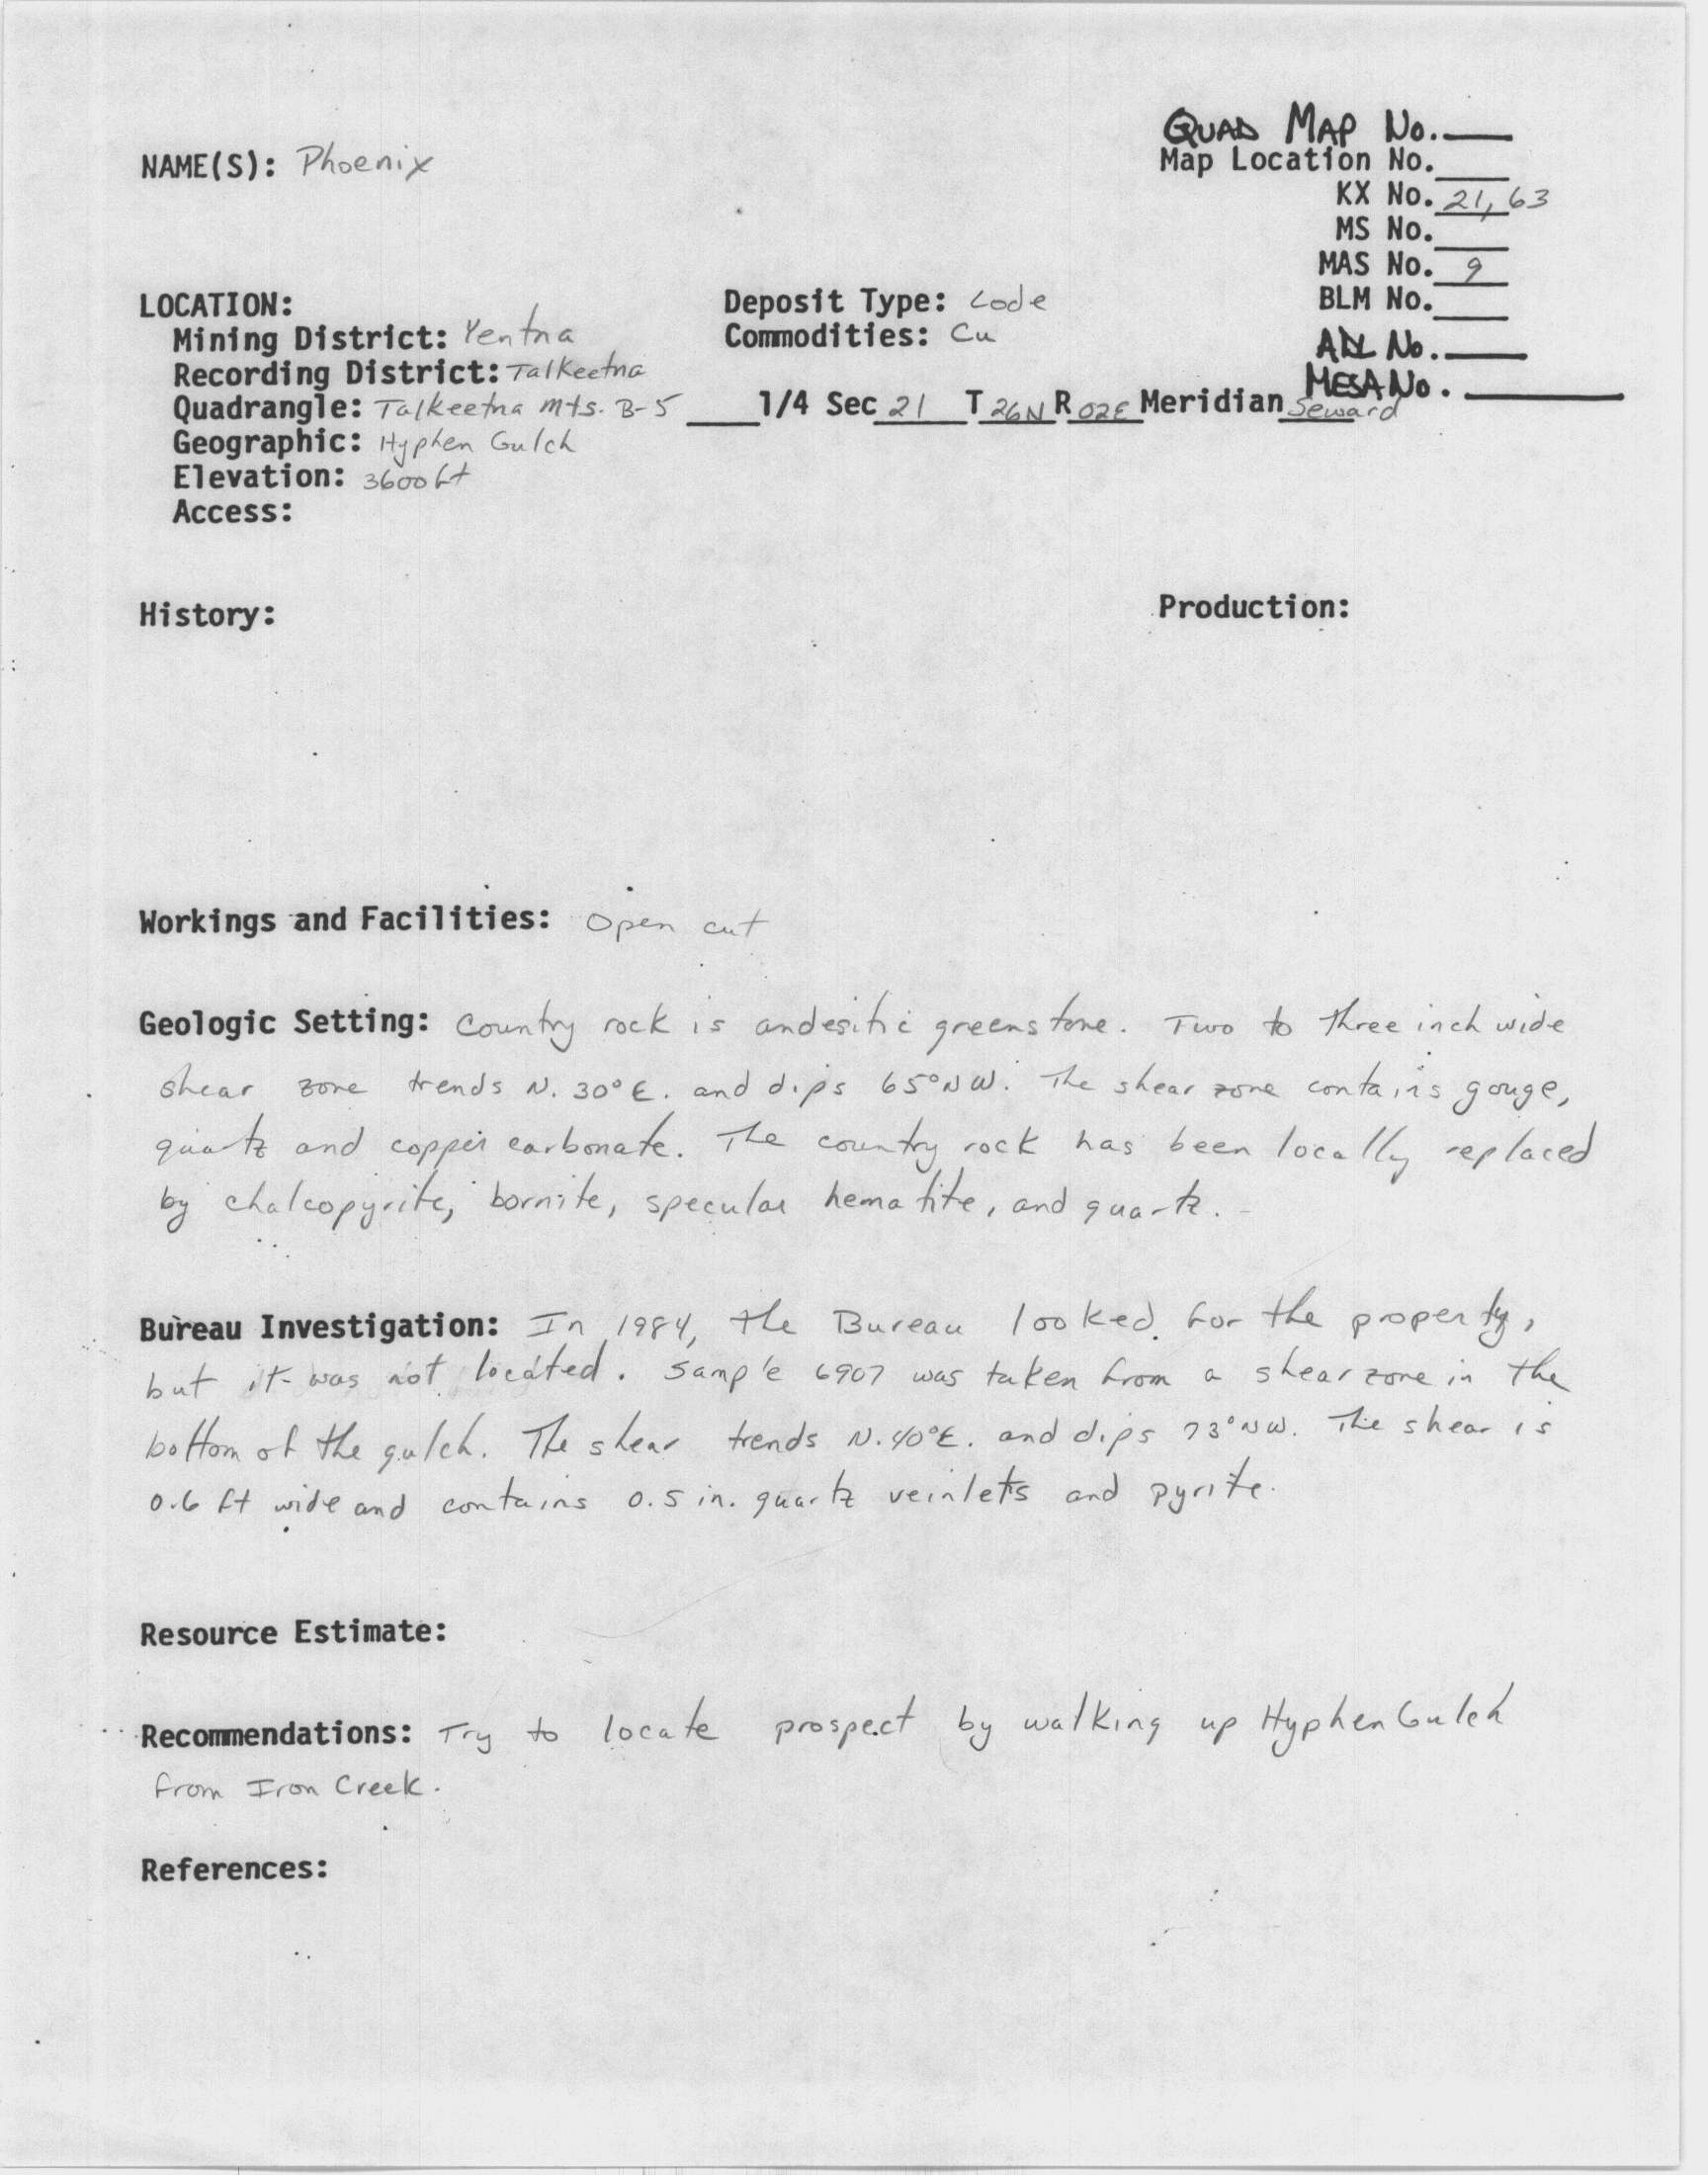 QUAD MAP No.
NAME(S): Phoenix
Map Location No.
KX No. 21, 63
MS No.
MAS No. 9
BLM No.
ADL No.
MESA No.
LOCATION:
Mining District: Yentna
Recording District: Talkeetna
Quadrangle: Talkeetna Mts. B-5
Geographic: Hyphen Gulch
Elevation: 3600 ft
Access:
Deposit Type: Lode
Commodities: Cu
1/4 Sec 21 T 26N R 02E Meridian Seward
History:
Production:
Workings and Facilities: Open cut
Geologic Setting: Country rock is andesitic greenstone. Two to three inch wide
shear zone trends N. 30° E. and dips 65° NW. The shear zone contains gouge,
quartz and copper carbonate. The country rock has been locally replaced
by chalcopyrite, bornite, specular hematite, and quartz.
Bureau Investigation: In 1984, the Bureau looked for the property,
but it was not located. Sample 6907 was taken from a shear zone in the
bottom of the gulch. The shear trends N. 40° E. and dips 73° NW. The shear is
0.6 ft wide and contains 0.5 in. quartz veinlets and pyrite.
Resource Estimate:
Recommendations: Try to locate prospect by walking up Hyphen Gulch
from Iron Creek.
References: